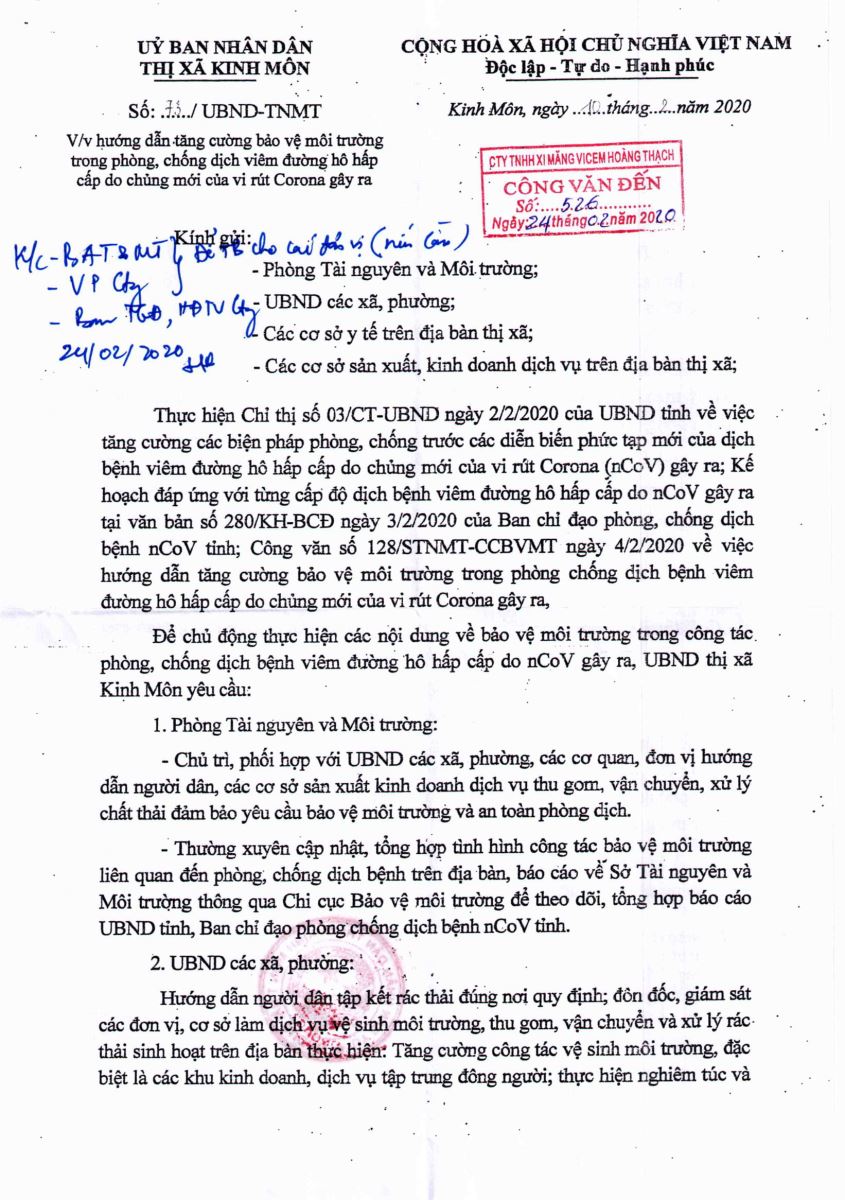 UỶ BAN NHÂN DÂN
THỊ XÃ KINH MÔN
CỘNG HOÀ XÃ HỘI CHỦ NGHĨA VIỆT NAM
Độc lập - Tự do - Hạnh phúc
Số: .../ UBND-TNMT
Kinh Môn, ngày ..10..tháng..2..năm 2020
V/v hướng dẫn tăng cường bảo vệ môi trường
trong phòng, chống dịch viêm đường hô hấp
cấp do chủng mới của vi rút Corona gây ra
CTY TNHH XI MĂNG VICEM HOÀNG THẠCH
CÔNG VĂN ĐẾN
Số:.....526...........
Ngày:24tháng02năm 2020
Kính gửi:
K/c - BAT&MT
- VP Cty
24/02/2020
- Phòng Tài nguyên và Môi trường;
- UBND các xã, phường;
- Các cơ sở y tế trên địa bàn thị xã;
- Các cơ sở sản xuất, kinh doanh dịch vụ trên địa bàn thị xã;
Thực hiện Chỉ thị số 03/CT-UBND ngày 2/2/2020 của UBND tỉnh về việc
tăng cường các biện pháp phòng, chống trước các diễn biến phức tạp mới của dịch
bệnh viêm đường hô hấp cấp do chủng mới của vi rút Corona (nCoV) gây ra; Kế
hoạch đáp ứng với từng cấp độ dịch bệnh viêm đường hô hấp cấp do nCoV gây ra
tại văn bản số 280/KH-BCĐ ngày 3/2/2020 của Ban chỉ đạo phòng, chống dịch
bệnh nCoV tỉnh; Công văn số 128/STNMT-CCBVMT ngày 4/2/2020 về việc
hướng dẫn tăng cường bảo vệ môi trường trong phòng chống dịch bệnh viêm
đường hô hấp cấp do chủng mới của vi rút Corona gây ra,
Để chủ động thực hiện các nội dung về bảo vệ môi trường trong công tác
phòng, chống dịch bệnh viêm đường hô hấp cấp do nCoV gây ra, UBND thị xã
Kinh Môn yêu cầu:
1. Phòng Tài nguyên và Môi trường:
- Chủ trì, phối hợp với UBND các xã, phường, các cơ quan, đơn vị hướng
dẫn người dân, các cơ sở sản xuất kinh doanh dịch vụ thu gom, vận chuyển, xử lý
chất thải đảm bảo yêu cầu bảo vệ môi trường và an toàn phòng dịch.
- Thường xuyên cập nhật, tổng hợp tình hình công tác bảo vệ môi trường
liên quan đến phòng, chống dịch bệnh trên địa bàn, báo cáo về Sở Tài nguyên và
Môi trường thông qua Chi cục Bảo vệ môi trường để theo dõi, tổng hợp báo cáo
UBND tỉnh, Ban chỉ đạo phòng chống dịch bệnh nCoV tỉnh.
2. UBND các xã, phường:
Hướng dẫn người dân tập kết rác thải đúng nơi quy định; đôn đốc, giám sát
các đơn vị, cơ sở làm dịch vụ vệ sinh môi trường, thu gom, vận chuyển và xử lý rác
thải sinh hoạt trên địa bàn thực hiện: Tăng cường công tác vệ sinh môi trường, đặc
biệt là các khu kinh doanh, dịch vụ tập trung đông người; thực hiện nghiêm túc và